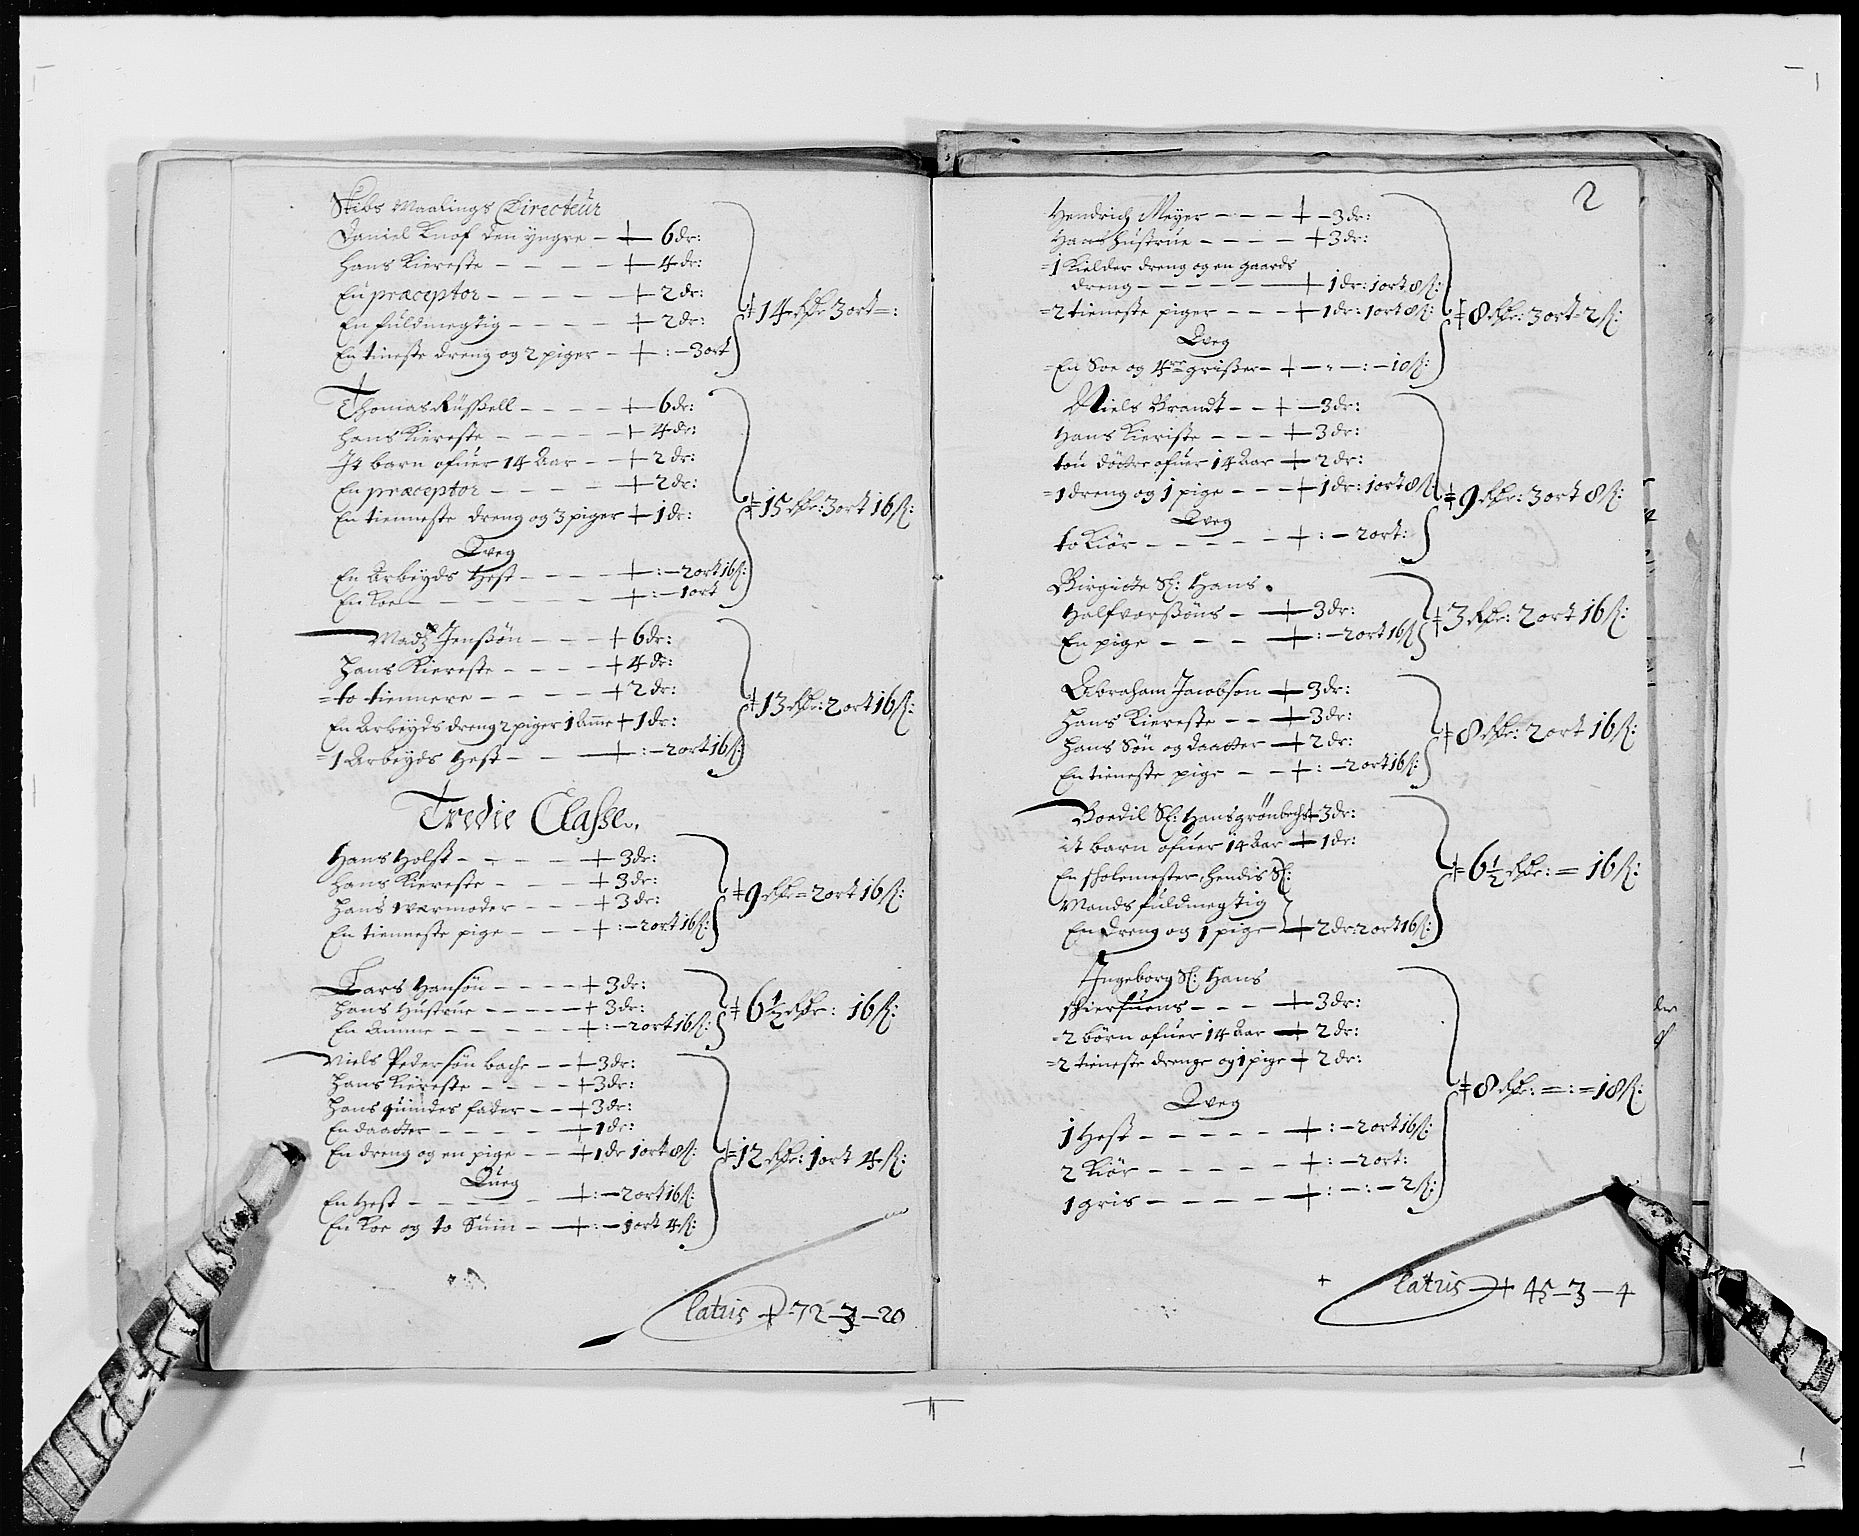 Skibs Maalings Directeur
Daniel Knof den yngre - + 6 dr:
Hans Kiereste - - - - + 4 dr:
En præceptor - - - - - + 2 dr:
En fuldmegtig - - - - + 2 dr:
En tineste dreng og 2 piger - + : - 3 ort
+ 14 Rdr 3 ort - :
Thomas Russell - - - - + 6 dr:
Hans Kiereste - - - - - + 4 dr:
It barn ofuer 14 Aar - - + 2 dr:
En præceptor - - - - - + 2 dr:
En tienneste dreng og 3 piger + 1 dr:
Qveg
En Arbeyds Hest - - - - + : - 2 ort 16 s:
En Koe - - - - - - - + : - 1 ort
+ 15 Rdr: 3 ort 16 s:
Madz Jenssøn - - - + 6 dr:
Hans Kiereste - - - - + 4 dr:
= to tiennere - - - - - + 2 dr:
En Arbeyds dreng 2 piger 1 Amme + 1 dr:
= 1 Arbeyds Hest - - - + : - 2 ort 16 s:
+ 13 Rdr: 2 ort 16 s:
Tredie Classe.
Hans Holst - - - - - + 3 dr:
Hans Kiereste - - - - + 3 dr:
Hans Wærmoder - - - + 3 dr:
En tienneste pige - - - + : - 2 ort 16 s:
+ 9 Rdr = 2 ort 16 s:
Lars Hansøn - - - - + 3 dr:
Hans Hustrue - - - - - + 3 dr:
En Amme - - - - - + : - 2 ort 16 s:
+ 6 1/2 Rdr: 16 s:
Niels Pedersøn bache - - + 3 dr:
Hans Kiereste - - - - + 3 dr:
Hans quindes fader - - + 3 dr:
En daatter - - - - - + 1 dr:
En dreng og en pige - - + 1 dr 1 ort 8 s:
Queg
En Hest - - - - - + : - 2 ort 16 s:
En Koe og to Suin - + : - 1 ort 4 s:
+ 12 Rdr: 1 ort 4 s:
Latus + 72 - 3 - 20
2
Hendrich Meyer - - - + - 3 dr:
Hans hustrue - - - - + 3 dr:
= 1 Kielder dreng og en gaards
dreng - - - - - - + 1 dr: 1 ort 8 s:
= 2 tieneste piger - - - + 1 dr: 1 ort 8 s:
Qveg
En Soe og 4re grisser - + - - : - 10 s:
+ 8 Rdr: 3 ort - 2 s:
Niels Brandt - - + - 3 dr:
Hans Kieriste - - - + 3 dr:
tou døttre ofuer 14 Aar + 2 dr:
= 1 dreng og 1 pige - - - + 1 dr: 1 ort 8 s:
Qveg
to Kiør - - - - - + : - 2 ort:
+ 9 Rdr: 3 ort 8 s:
Birgitte Sl: Hans
Halfvorssøns - + 3 dr:
En pige - - - - + : - 2 ort 16 s
+ 3 Rdr: 2 ort 16 s:
Abraham Jacobson + 3 dr:
Hans Kiereste - - + 3 dr:
Hans Søn og daatter + 2 dr:
En tieneste pige - - + : - 2 ort 16 s:
+ 8 Rdr: 2 ort 16 s:
Boedil Sl: Hans grønbechs + 3 dr:
it barn ofuer 14 Aar + 1 dr:
En skolemester, hendis Sl:
Mands fuldmegtig
En dreng og 1 pige + 2 dr: 2 ort 16 s:
+ 6 1/2 Rdr: = 16 s:
Ingeborg Sl: Hans
- - - + 3 dr:
- 2 børn ofuer 14 Aar + 2 dr:
= 2 tieneste drenge og 1 pige + 2 dr:
Qveg
1 Hest - - - - - + : - 2 ort 16 s:
2 Kiør - - - - - + : - 2 ort:
1 gris - - - - - + : - : - 2 s:
+ 8 Rdr: = : = 18 s:
Latus + 45 - 3 - 4